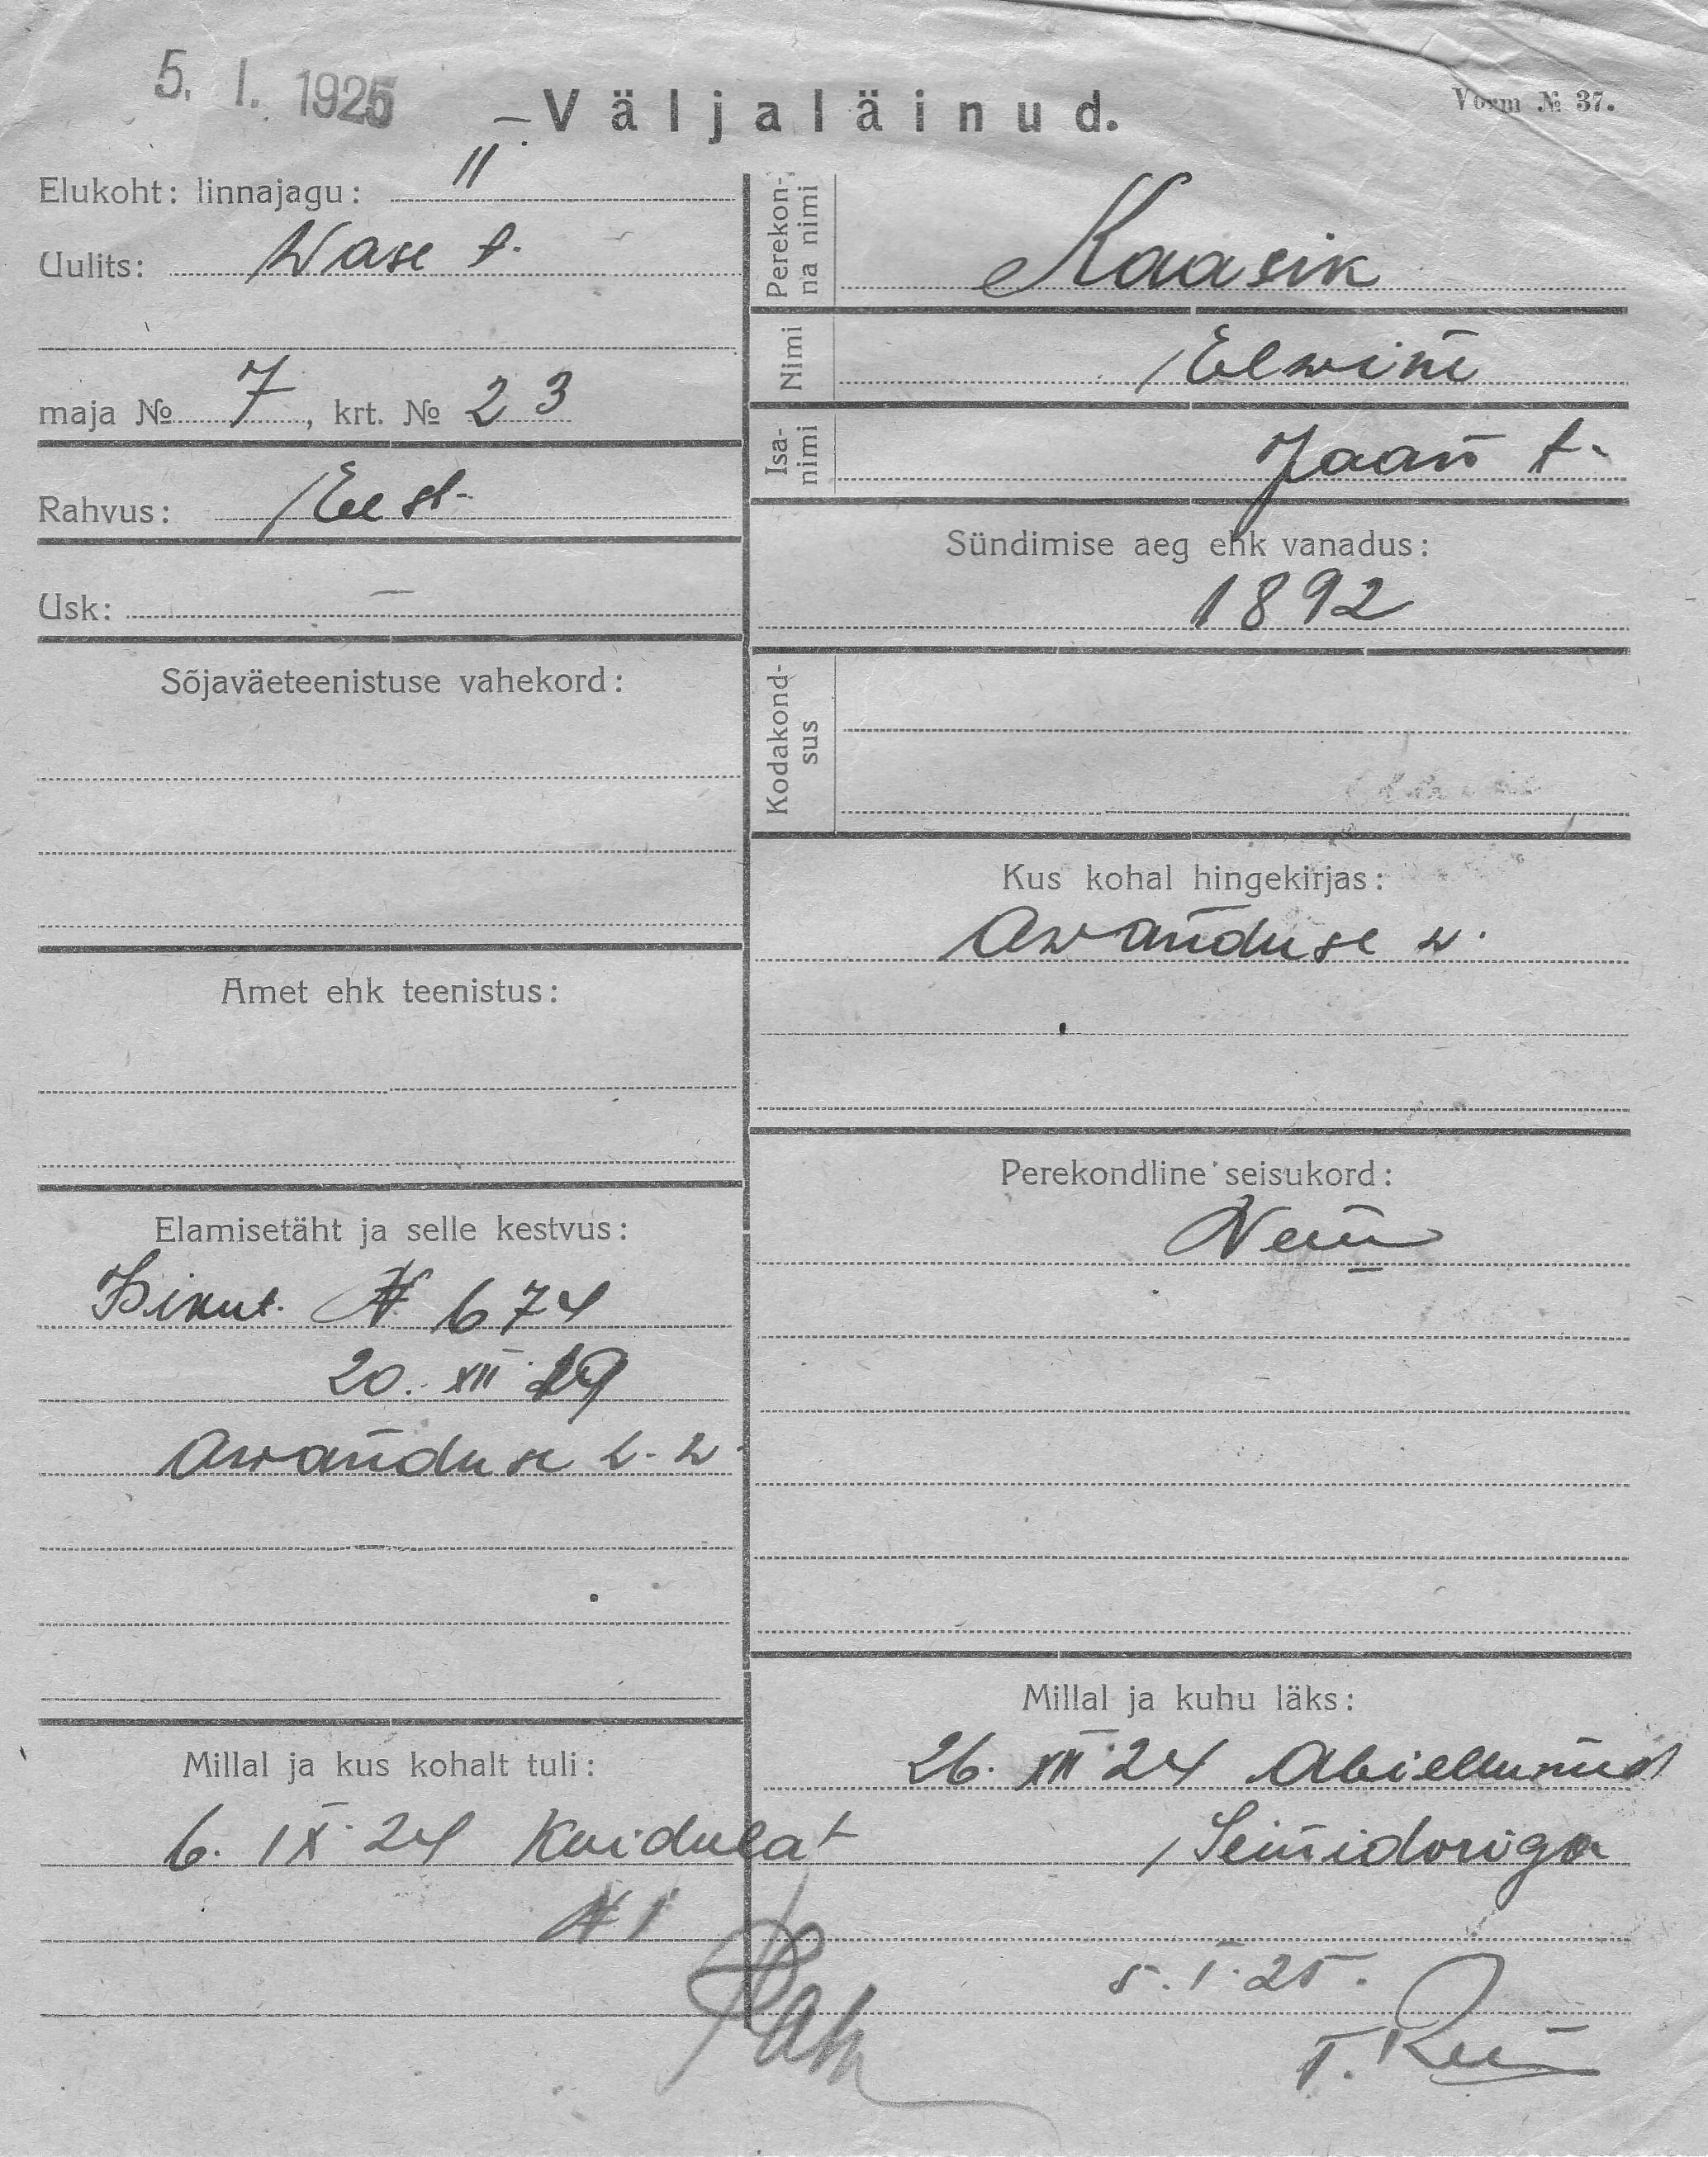 5. I. 1925
Väljaläinud.
Vorm № 37.
Elukoht: linnajagu: II
Uulits: Wase t.
maja № 7, krt. № 23
Rahvus: Eest.
Usk: —
Sõjaväeteenistuse vahekord:
Amet ehk teenistus:
Elamisetäht ja selle kestvus:
Isikut. № 674
20. XII 19
Awanduse w. w.
Millal ja kus kohalt tuli:
6. IX 24 Koidula t
№ 1
Perekonna nimi
Kaasik
Nimi
Elwine
Isanimi
Jaan t.
Sündimise aeg ehk vanadus:
1892
Kodakondsus
Kus kohal hingekirjas:
Awanduse w.
Perekondline seisukord:
Neiu
Millal ja kuhu läks:
26. XII 24 Abiellunud
5. I. 25.